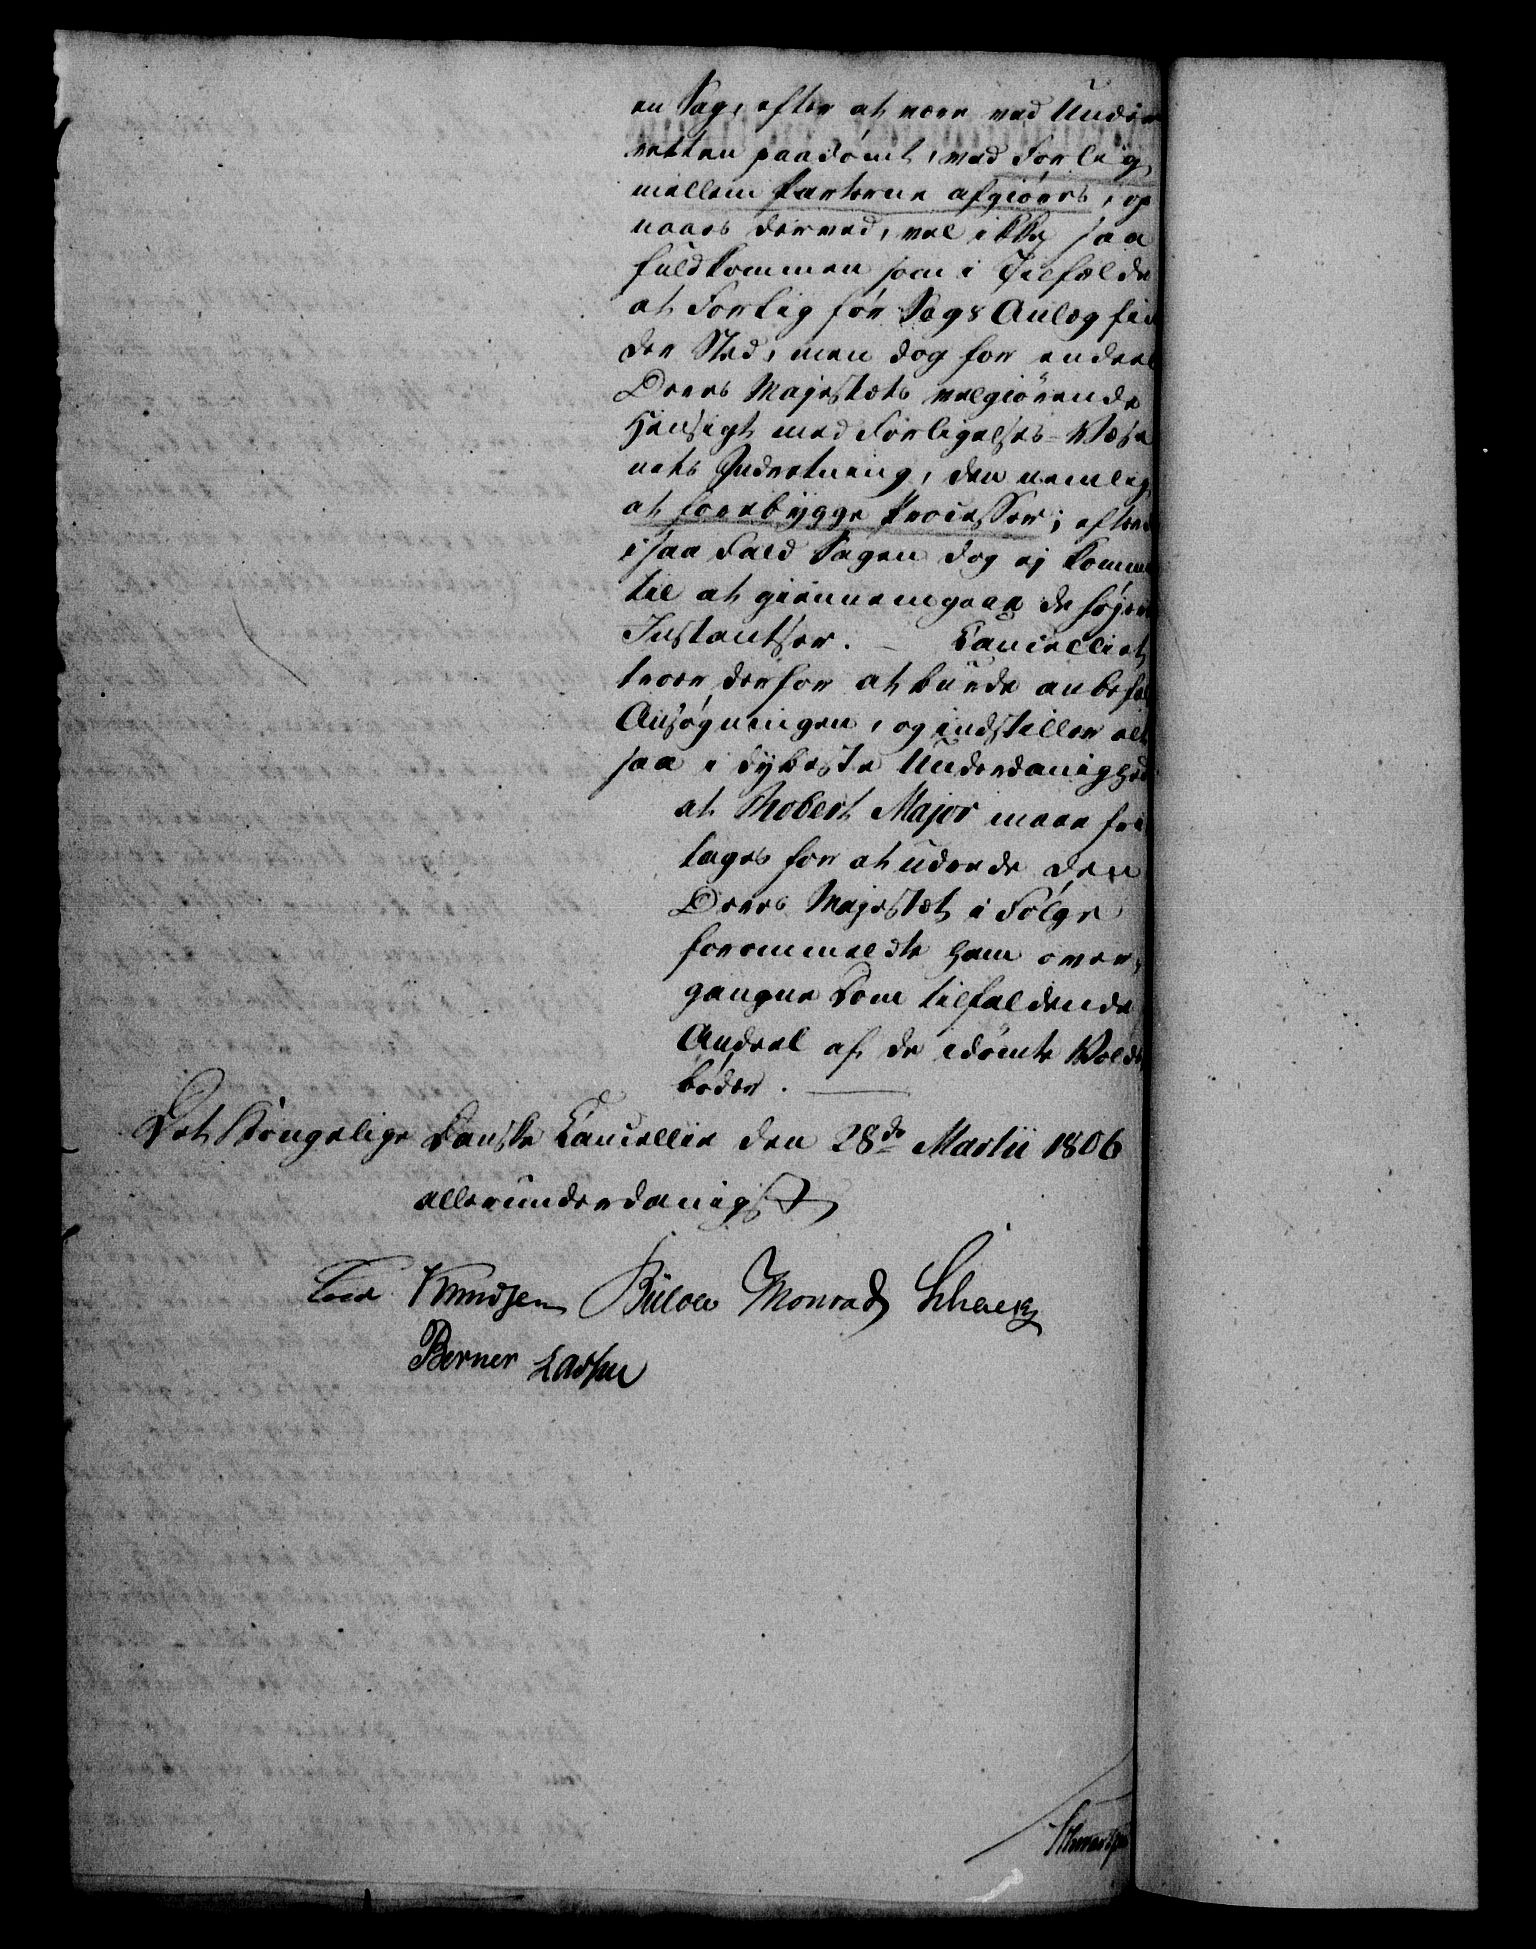 en Sag, efter at være ved Under
retten paadømt, ved Forlig
mellem Parterne afgiøres, op
naaes derved, vel ikke saa
fuldkommen som i Tilfælde
at Forlig før Sags Anlæg fin
der Sted, men dog for endeel
Deres Majestæts velgiørende
Hensigt med Forligelses-Væse
nets Indretning, den nemlig
at forebygge Processer; efterd
i saa Fald Sagen dog ej komme
til at giennemgaae de højere
Instantser. – Cancelliet
troer derfor at burde anbefale
Ansøgningen, og indstiller alt
saa i dybeste Underdanighed
at Robert Major maae fri
tages for at udrede den
Deres Majestæt i Følge
forommeldte ham over
gangne Dom tilfaldende
Andeel af de idømte Volds
bøder. —
Det Kongelige Danske Cancellie den 28de Martii 1806
allerunderdanigst
Knudsen Bülow Monrad Schack
Berner Lassen